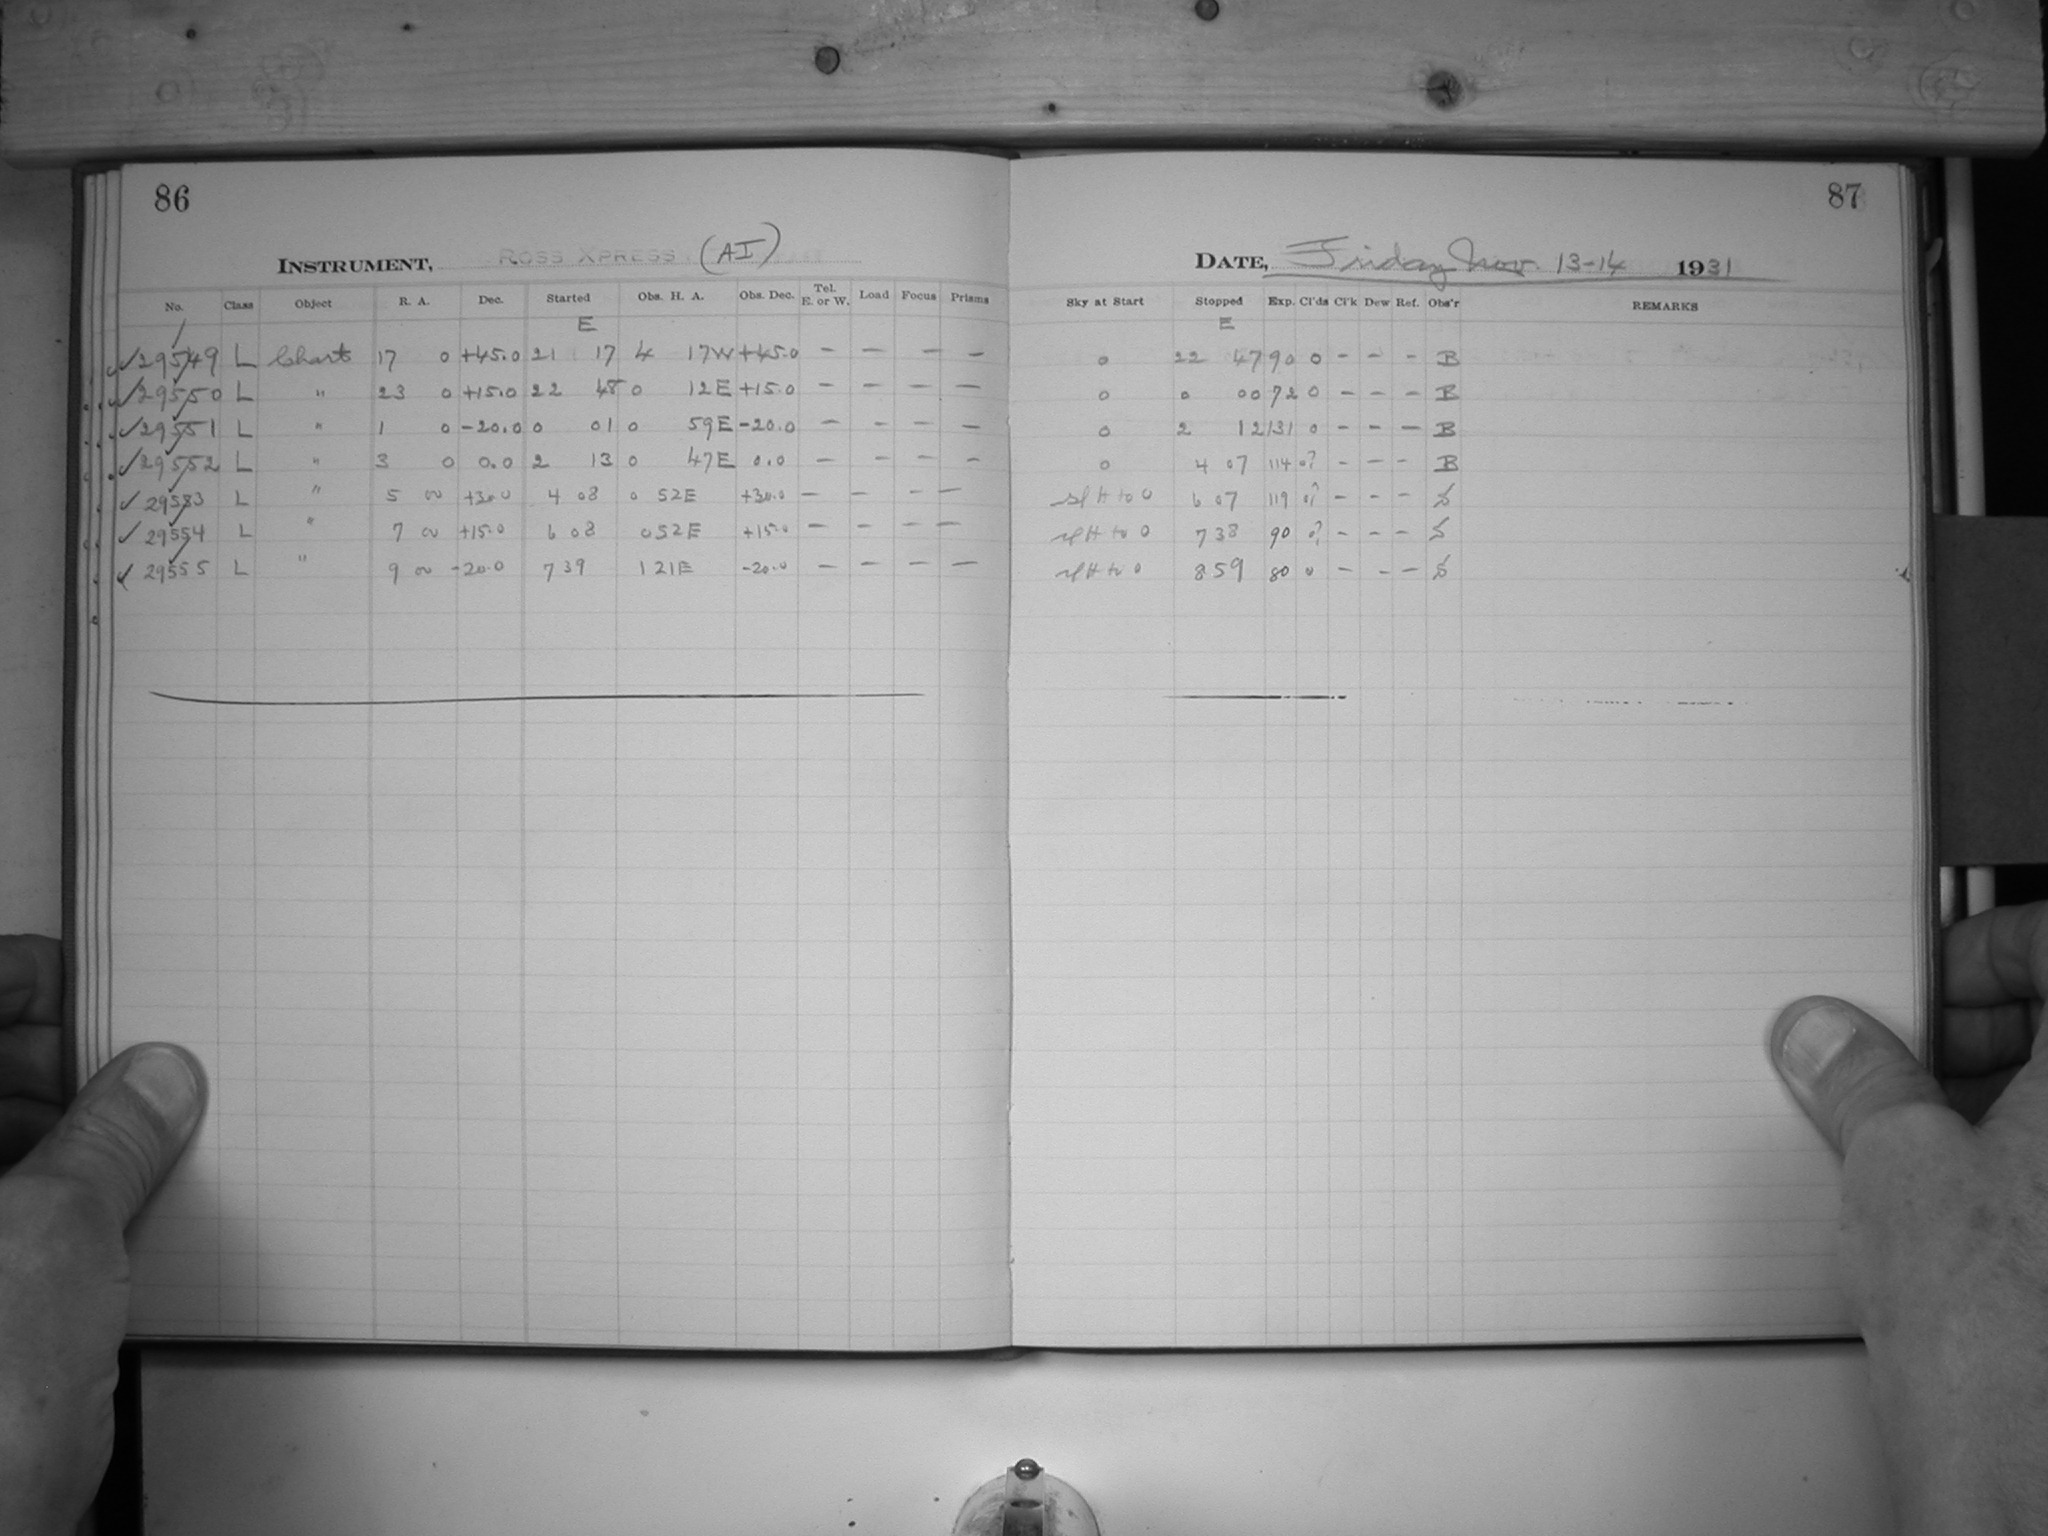 86
INSTRUMENT, ROSS XPRESS (AI)
No. Class Object R. A. Dec. Started Obs. H. A. Obs. Dec. Tel. E. or W. Load Focus Prisms
E
29549 L Chart 17 0 +45.0 21 17 4 17W +45.0 – – – –
29550 L " 23 0 +15.0 22 48 0 12E +15.0 – – – –
29551 L " 1 0 -20.0 0 01 0 59E -20.0 – – – –
29552 L " 3 0 0.0 2 13 0 47E 0.0 – – – –
29553 L " 5 00 +30.0 4 08 0 52E +30.0 – – – –
29554 L " 7 00 +15.0 6 08 0 52E +15.0 – – – –
29555 L " 9 00 -20.0 7 39 1 21E -20.0 – – – –
87
DATE, Friday Nov. 13-14 1931
Sky at Start Stopped Exp. Cl'ds Cl'k Dew Ref. Obs'r REMARKS
E
0 22 47 90 0 – – – B
0 0 00 72 0 – – – B
0 2 12 131 0 – – – B
0 4 07 114 0? – – – B
sl H to 0 6 07 119 0? – – – S
sl H to 0 7 38 90 0? – – – S
sl H to 0 8 59 80 0 – – – S